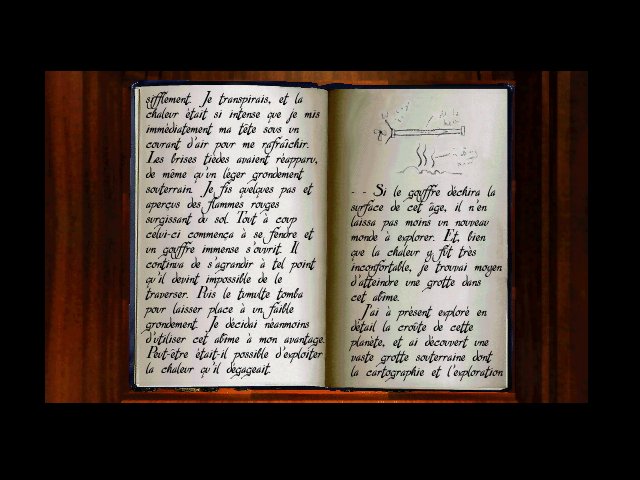 sifflement. Je transpirais, et la
chaleur était si intense que je mis
immédiatement ma tête sous un
courant d'air pour me rafraîchir.
Les brises tièdes avaient réapparu,
de même qu'un léger grondement
souterrain. Je fis quelques pas et
aperçus des flammes rouges
surgissant du sol. Tout à coup
celui-ci commença à se fendre et
un gouffre immense s'ouvrit. Il
continua de s'agrandir à tel point
qu'il devint impossible de le
traverser. Puis le tumulte tomba
pour laisser place à un faible
grondement. Je décidai néanmoins
d'utiliser cet abîme à mon avantage.
Peut-être était-il possible d'exploiter
la chaleur qu'il dégageait.
- - Si le gouffre déchira la
surface de cet âge, il n'en
laissa pas moins un nouveau
monde à explorer. Et, bien
que la chaleur y fût très
inconfortable, je trouvai moyen
d'atteindre une grotte dans
cet abîme.
J'ai à présent exploré en
détail la croûte de cette
planète, et ai découvert une
vaste grotte souterraine dont
la cartographie et l'exploration